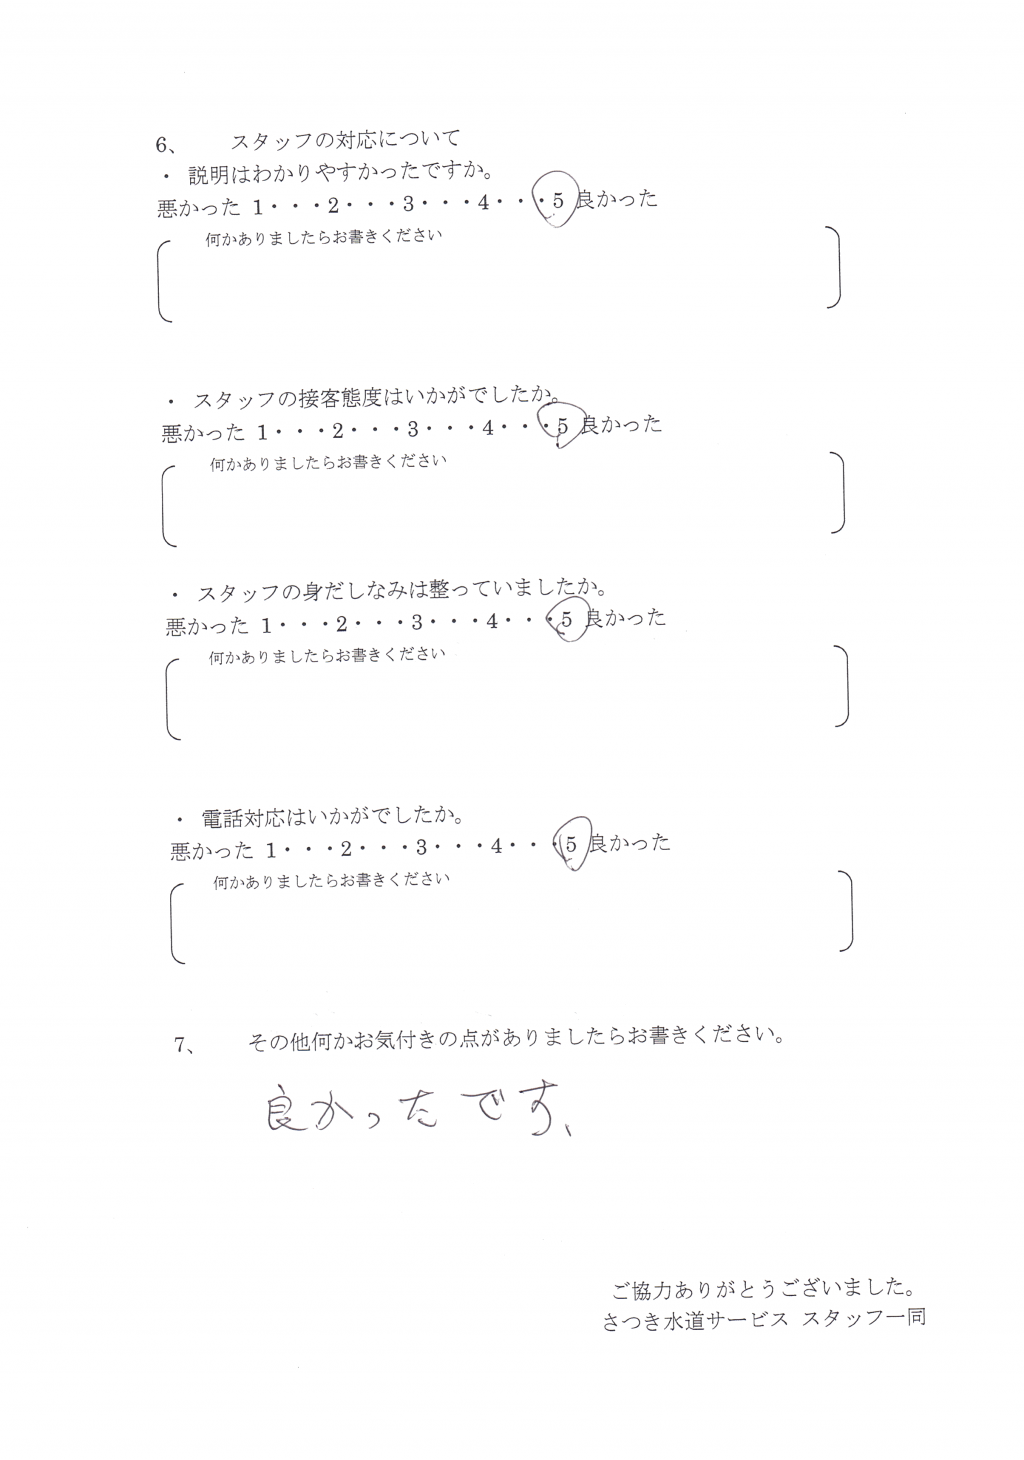 6、 スタッフの対応について
・ 説明はわかりやすかったですか。
悪かった 1・・・2・・・3・・・4・・・5 良かった
何かありましたらお書きください
・ スタッフの接客態度はいかがでしたか。
悪かった 1・・・2・・・3・・・4・・・5 良かった
何かありましたらお書きください
・ スタッフの身だしなみは整っていましたか。
悪かった 1・・・2・・・3・・・4・・・5 良かった
何かありましたらお書きください
・ 電話対応はいかがでしたか。
悪かった 1・・・2・・・3・・・4・・・5 良かった
何かありましたらお書きください
7、 その他何かお気付きの点がありましたらお書きください。
良かったです、
ご協力ありがとうございました。
さつき水道サービス スタッフ一同